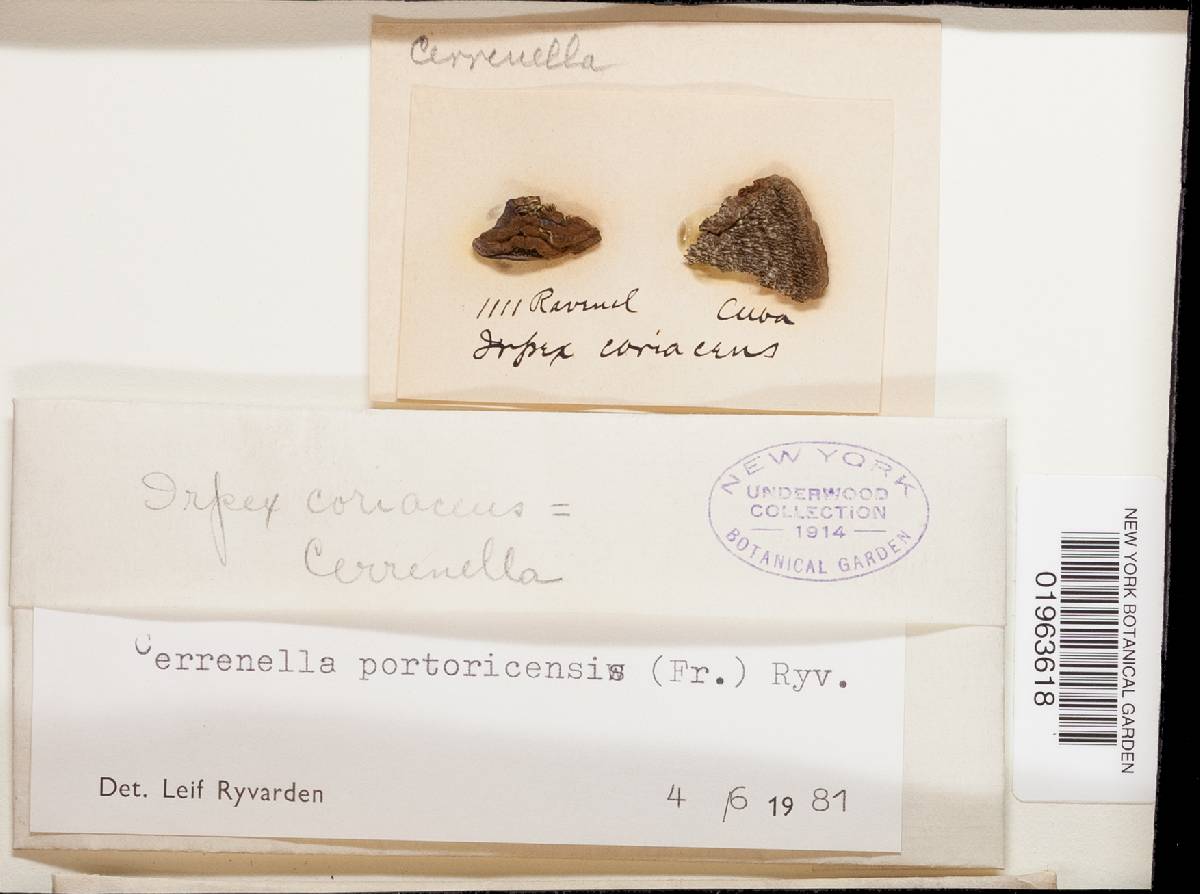 Cerrenella
1111 Ravenel Cuba
Irpex coriaceus
Irpex coriaceus =
Cerrenella
NEW YORK
UNDERWOOD
COLLECTION
1914
BOTANICAL GARDEN
Cerrenella portoricensis (Fr.) Ryv.
Det. Leif Ryvarden 4/6 1981
NEW YORK BOTANICAL GARDEN
01963618